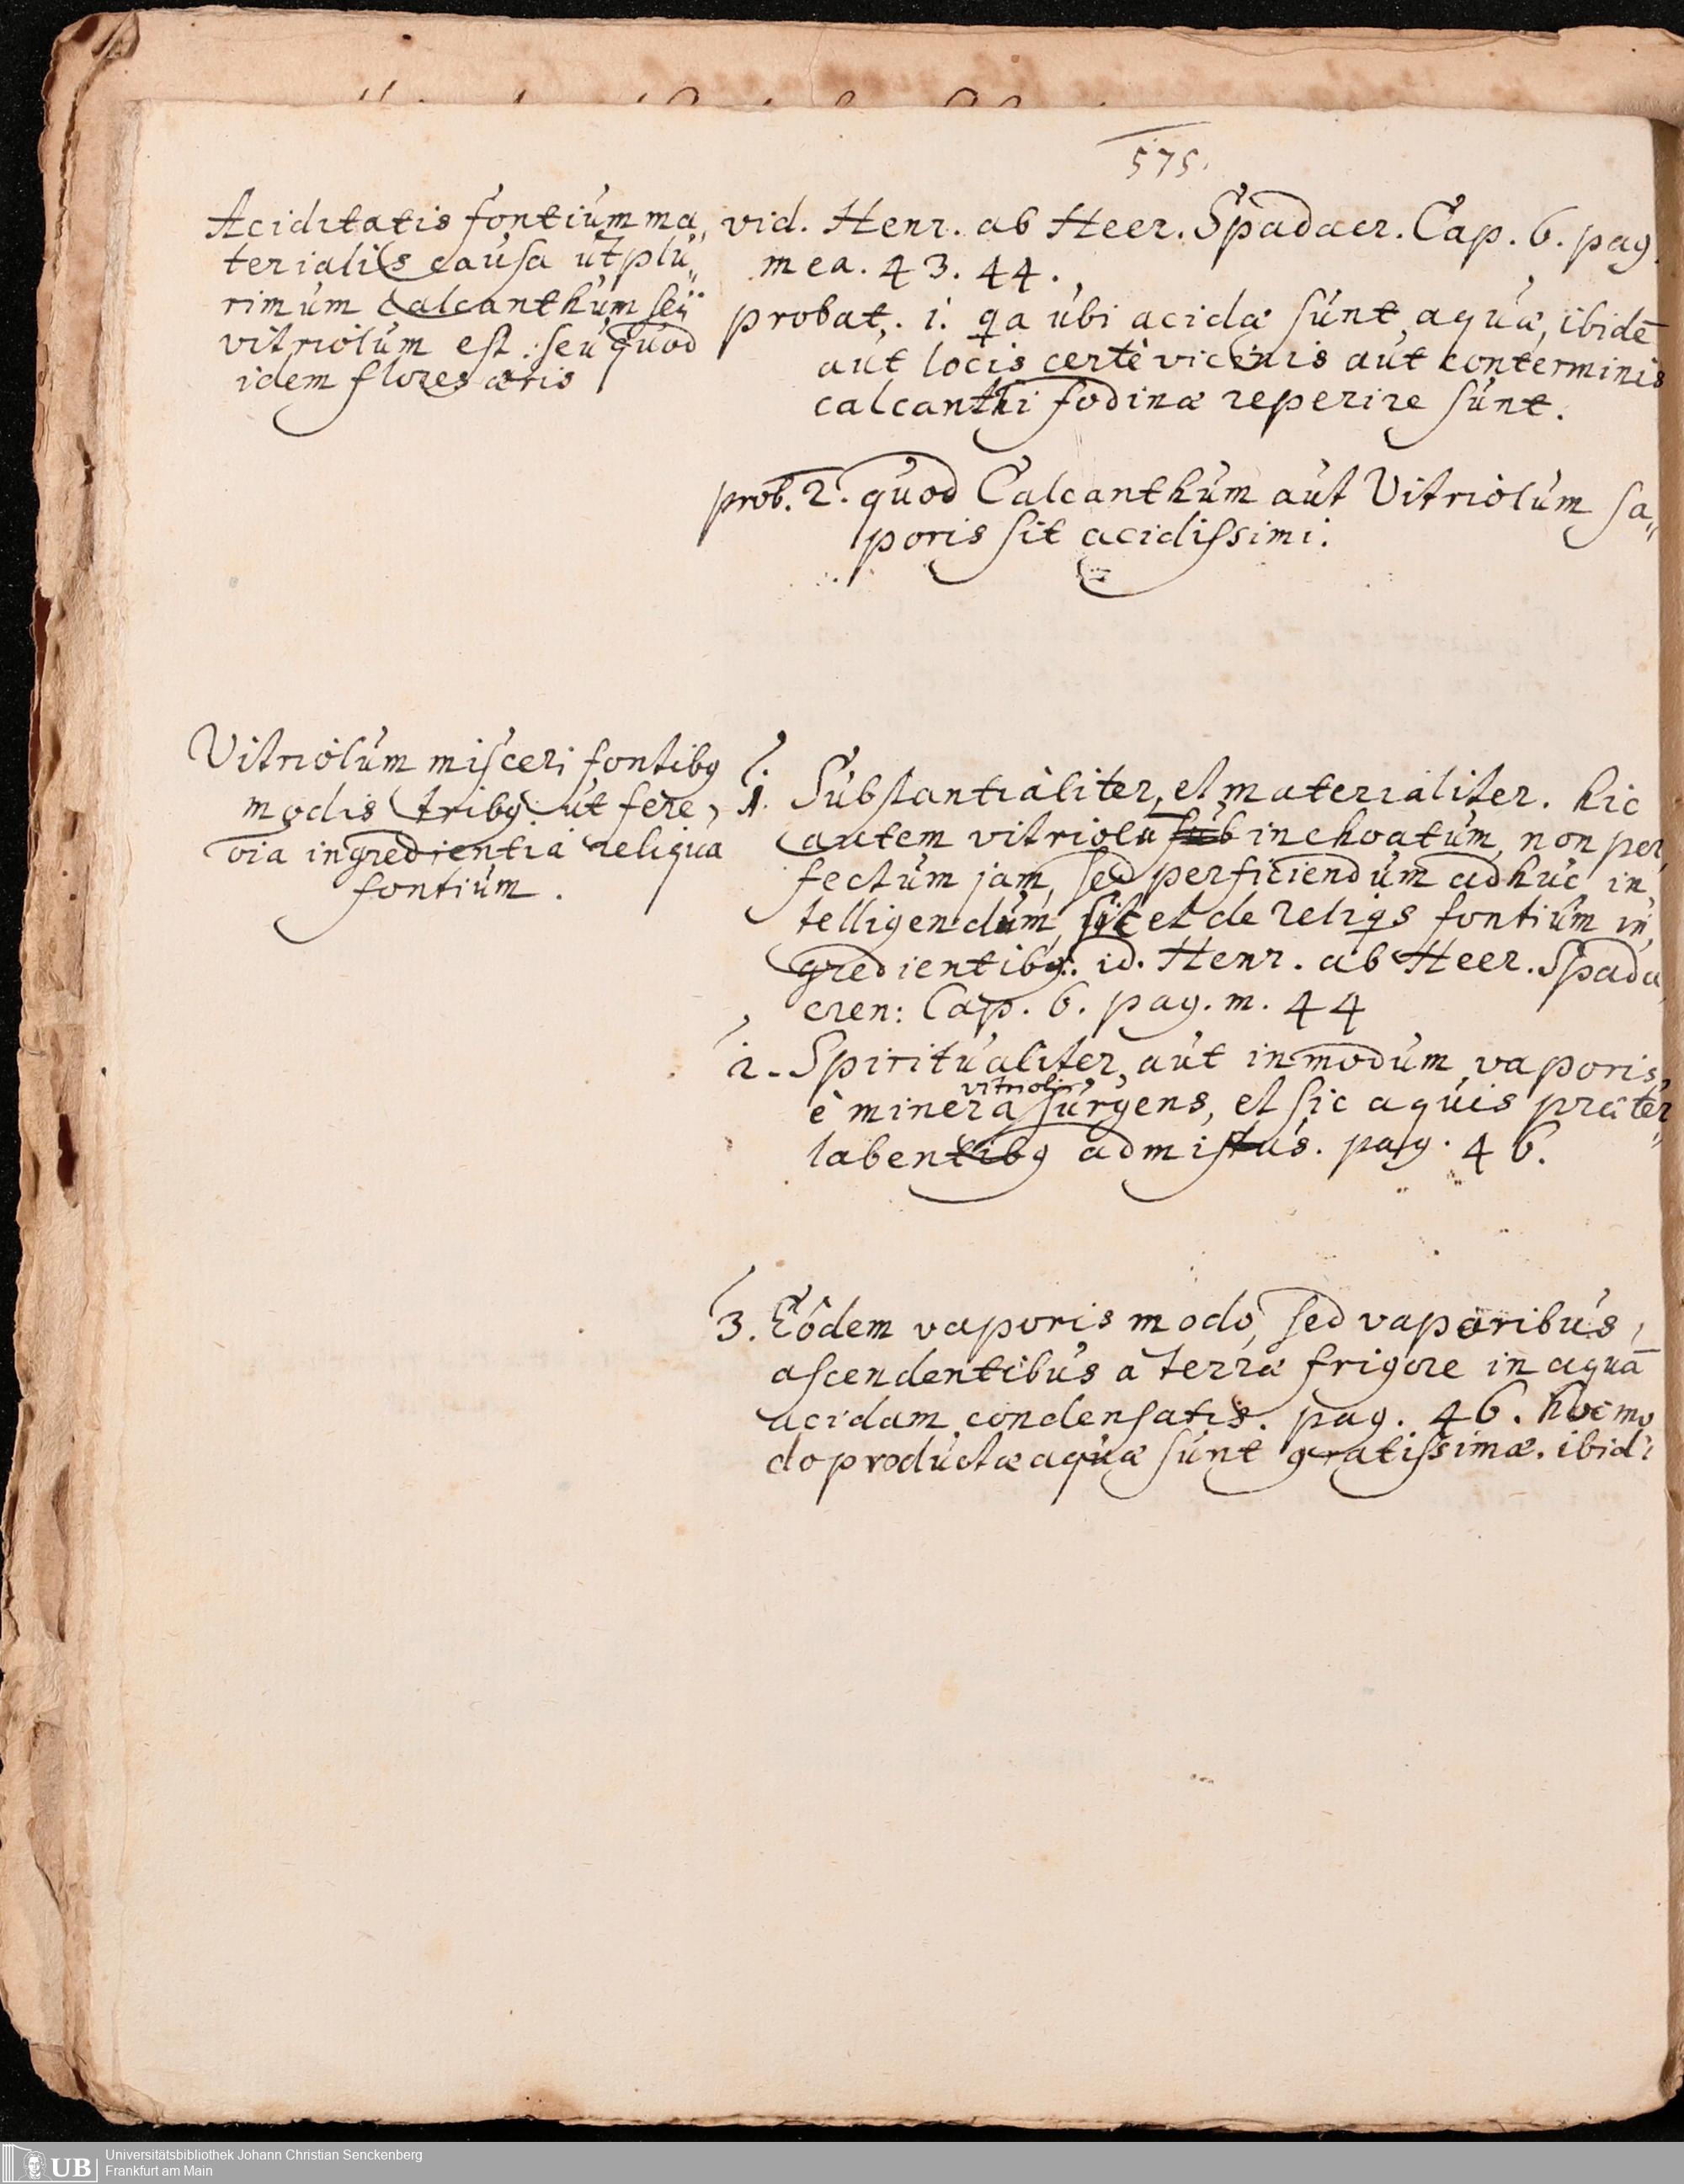 575.
Aciditatis fontium ma„
terialis causa ut plu„
rimum calcanthum seu
vitriolum est: seu quod
idem flores æris
vid. Henr. ab Heer. Spadacr. Cap. 6. pag.
mea. 43. 44.
probat. 1. qa ubi acidæ sunt aquæ, ibidē
aut locis certè vicinis aut conterminis
calcanthi fodinæ reperire sunt.
prob. 2. quod Calcanthum aut Vitriolum sa„
poris sit acidissimi.
Vitriolum misceri fontibq
modis tribq: ut fere,
oīa ingredientia reliqua
fontium.
1. Substantialiter, et materialiter. hic
autem vitriolū inchoatum, non per„
fectum jam, sed perficiendum adhuc in„
telligendum, sic et de reliqs fontium in„
gredientibq. id. Henr. ab Heer. Spada„
cren: Cap. 6. pag. m. 44
2. Spiritualiter, aut in modum vaporis,
vitrioli
è minera surgens, et sic aquis præter„
labentibq admistus. pag. 46.
3. Eôdem vaporis modo, sed vaporibus,
ascendentibus à terræ frigore in aquā
acidam condensatis. pag. 46. hoc mo
do productæ aquæ sunt gratissimæ. ibid:
UB Universitätsbibliothek Johann Christian Senckenberg
Frankfurt am Main